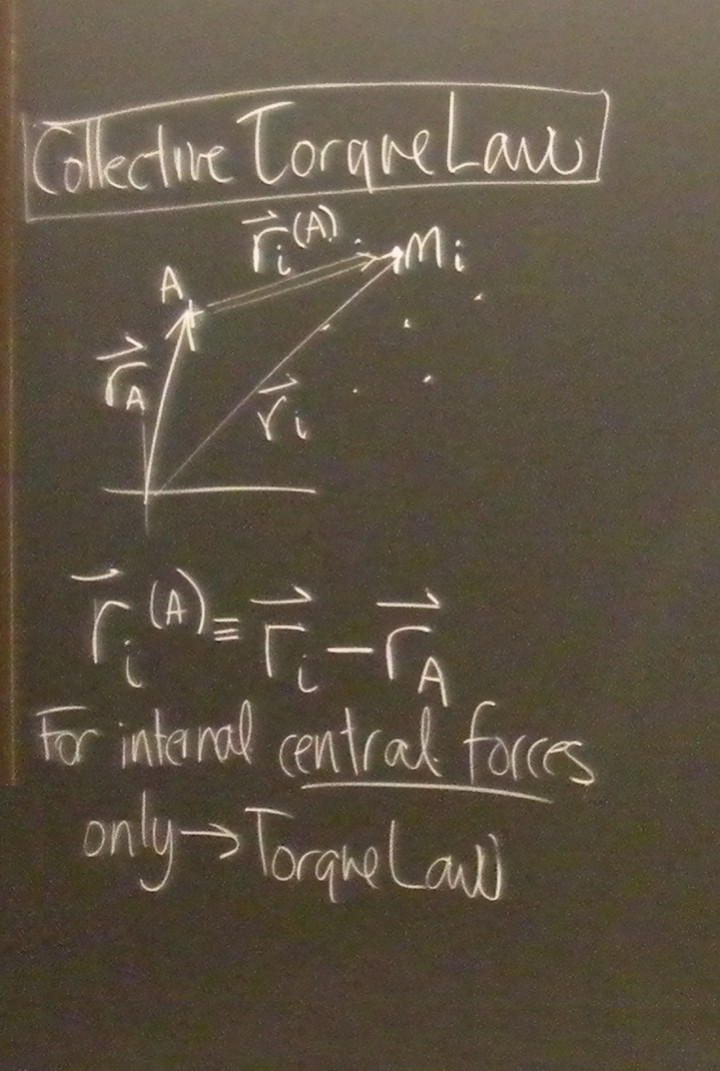 Collective Torque Law
r⃗ᵢ⁽ᴬ⁾ mᵢ
A
r⃗_A
r⃗ᵢ
r⃗ᵢ⁽ᴬ⁾ ≡ r⃗ᵢ − r⃗_A
For internal central forces
only → Torque Law